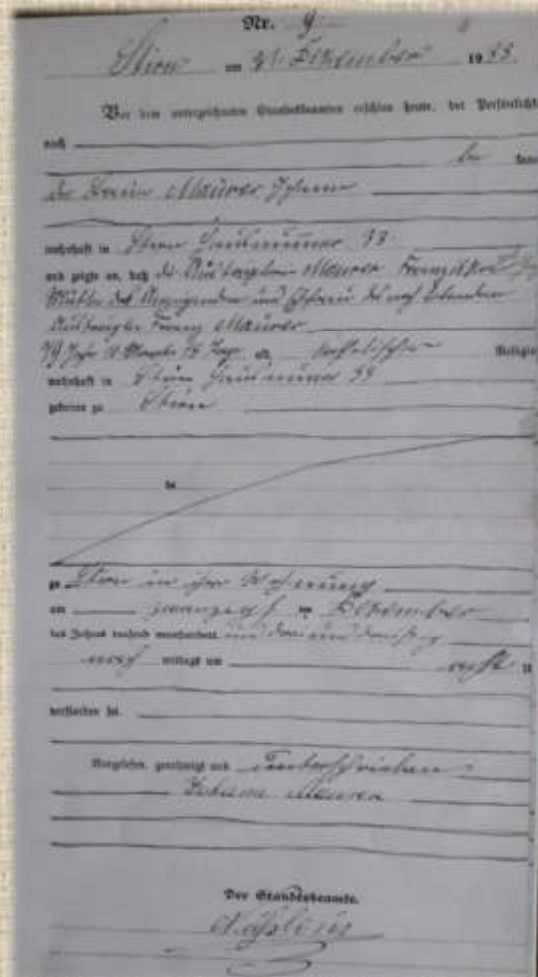 Nr. 9
Stirn am 21. Dezember 1933.
Vor dem unterzeichneten Standesbeamten erschien heute, der Persönlichkeit
nach
der Maurer Johann
wohnhaft in Stirn Hausnummer 33
und zeigte an, daß die Maurer Franziska
Mutter des Anzeigenden und Ehefrau des noch lebenden
Franz Maurer
79 Jahre 11 Monate Tage alt, katholischer Religion
wohnhaft in Stirn Hausnummer 33
geboren zu Stirn
zu Stirn in ihrer Wohnung
am zwanzigsten Dezember
des Jahres tausend neunhundert und dreiunddreißig
nach mittags um acht
verstorben sei.
Vorgelesen, genehmigt und unterschrieben
Johann Maurer
Der Standesbeamte.